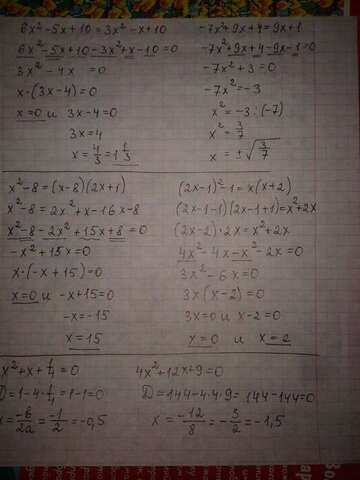 6x²-5x+10=3x²-x+10
6x²-5x+10-3x²+x-10=0
3x²-4x=0
x·(3x-4)=0
x=0 и 3x-4=0
3x=4
x=4/3=1 1/3
-7x²+9x+4=9x+1
-7x²+9x+4-9x-1=0
-7x²+3=0
-7x²=-3
x²=-3:(-7)
x²=3/7
x=±√3/7
x²-8=(x-8)(2x+1)
x²-8=2x²+x-16x-8
x²-8-2x²+15x+8=0
-x²+15x=0
x·(-x+15)=0
x=0 и -x+15=0
-x=-15
x=15
(2x-1)²-1=x(x+2)
(2x-1-1)(2x-1+1)=x²+2x
(2x-2)·2x=x²+2x
4x²-4x-x²-2x=0
3x²-6x=0
3x(x-2)=0
3x=0 и x-2=0
x=0 и x=2
x²+x+1/4=0
D=1-4·1/4=1-1=0
x=-б/2a=-1/2=-0,5
4x²+12x+9=0
D=144-4·4·9=144-144=0
x=-12/8=-3/2=-1,5